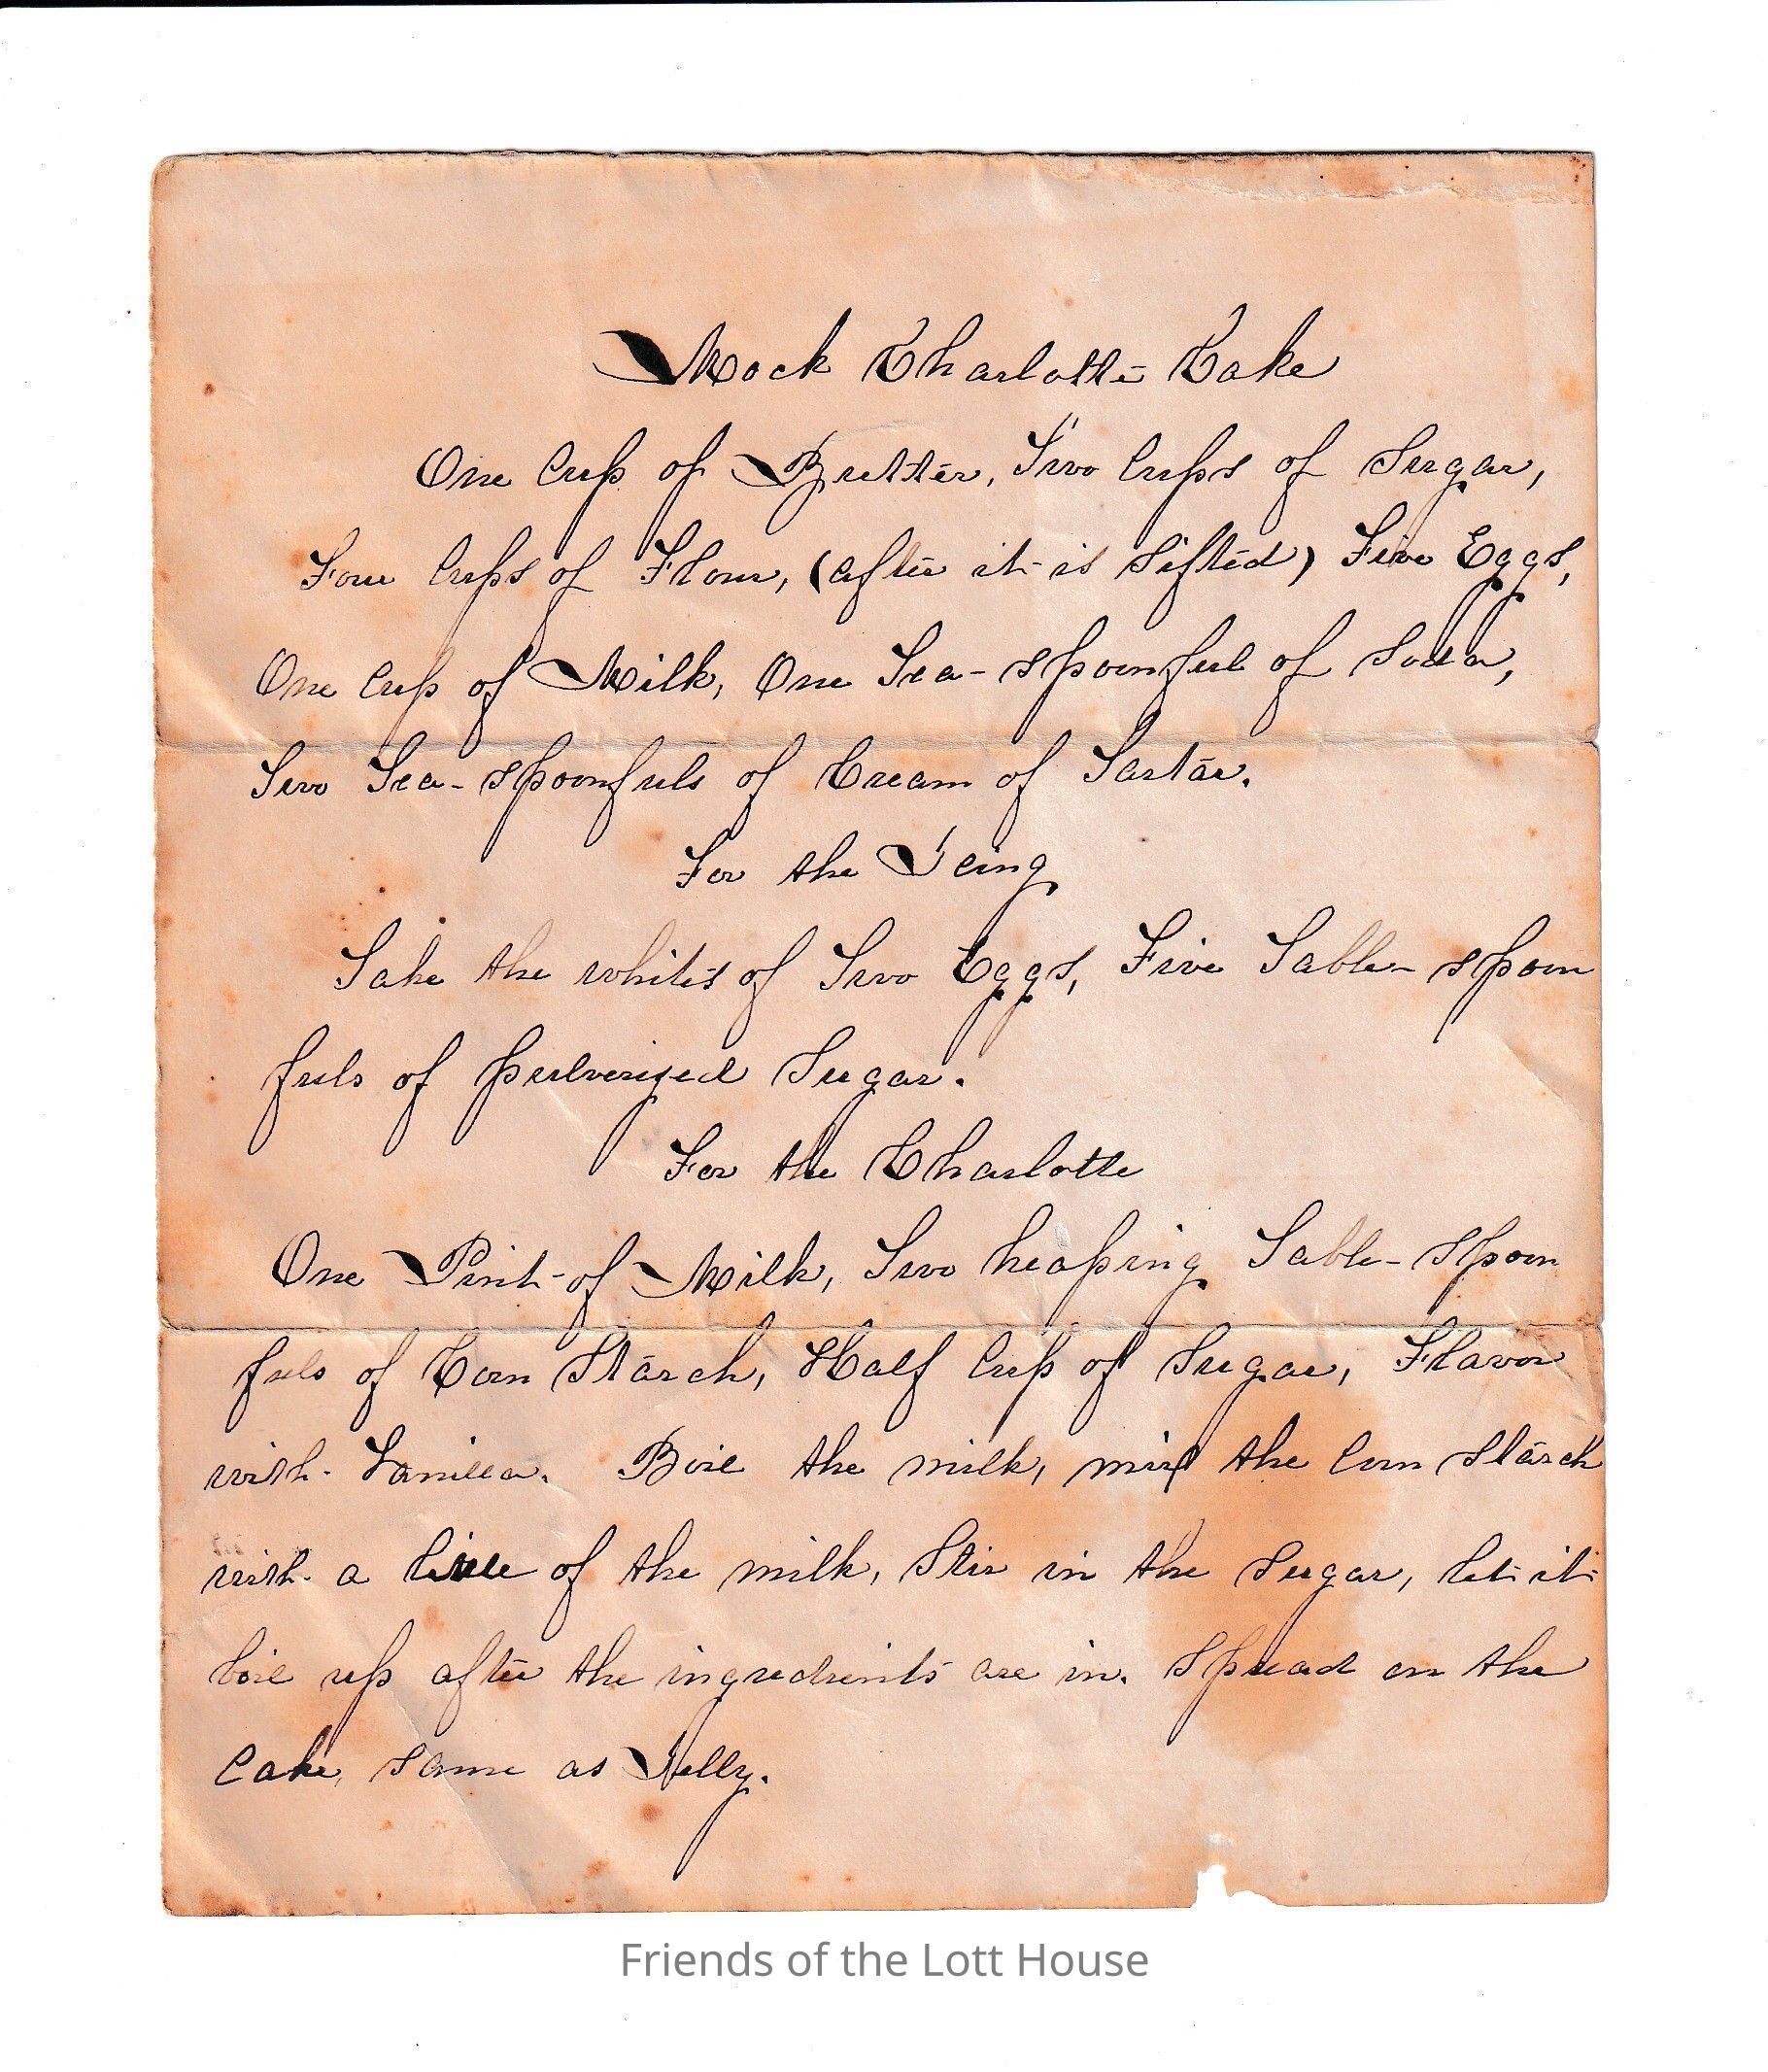 Mock Charlotte Cake
One Cup of Butter, Two Cups of Sugar,
Four Cups of Flour, (after it is Sifted) Five Eggs,
One Cup of Milk, One Tea-spoonful of Soda,
Two Tea-spoonfuls of Cream of Tartar.
For the Icing
Take the whites of Two Eggs, Five Table-spoon
fuls of pulverized Sugar.
For the Charlotte
One Pint of Milk, Two heaping Table-spoon
fuls of Corn Starch, Half Cup of Sugar, Flavor
with Vanilla. Boil the milk, mix the Corn Starch
with a little of the milk, Stir in the Sugar, let it
boil up after the ingredients are in. Spread on the
Cake, same as Jelly.
Friends of the Lott House